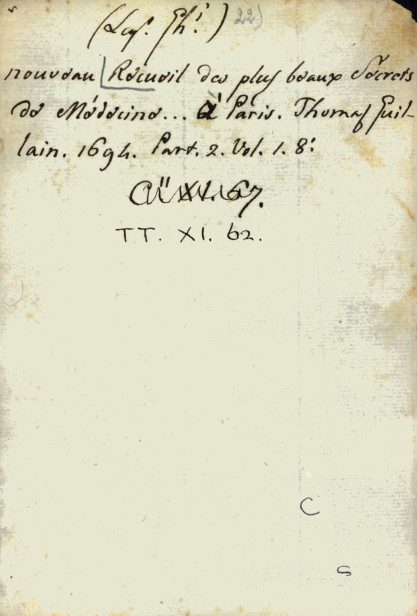 22)
nouveau Recueil des plus beaux Secrets
de Médecine... à Paris. Thomas Guil-
lain. 1694. Part. 2. Vol. 1. 8:
TT. XI. 62.
C